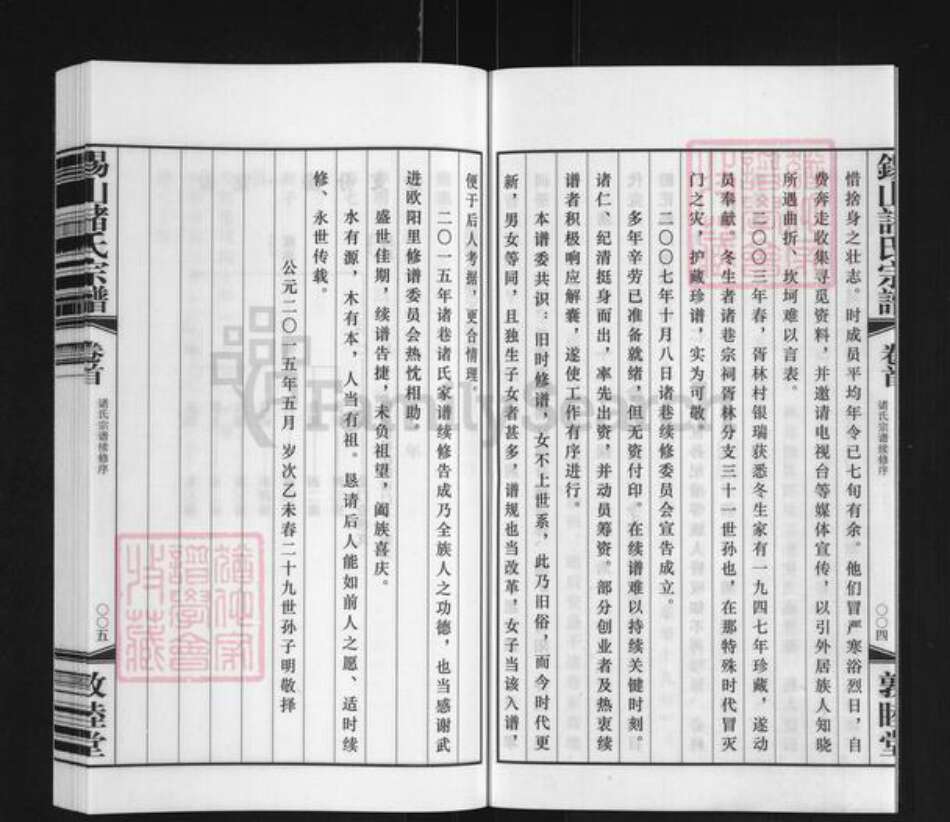 惜捨身之壮志。时成员平均年令已七旬有余。他们冒严寒浴烈日，自
费奔走收集寻觅资料，并邀请电视台等媒体宣传，以引外居族人知晓
所遇曲折、坎坷难以言表。
二〇〇三年春，胥林村银瑞获悉冬生家有一九四七年珍藏，遂动
员奉献。冬生者诸巷宗祠胥林分支三十一世孙也，在那特殊时代冒灭
门之灾，护藏珍谱，实为可敬。
二〇〇七年十月八日诸巷续修委员会宣告成立。
多年辛劳已准备就绪，但无资付印。在续谱难以持续关键时刻。
诸仁、纪清挺身而出，率先出资，并动员筹资。部分创业者及热衷续
谱者积极响应解囊，遂使工作有序进行。
本谱委共识：旧时修谱，女不上世系，此乃旧俗，而今时代更
新，男女等同，且独生子女者甚多，谱规也当改革，女子当该入谱，
锡山諸氏宗譜
卷首
诸氏宗谱续修序
〇〇四
敦睦堂
便于后人考据，更合情理。
二〇一五年诸巷诸氏家谱续修告成乃全族人之功德，也当感谢武
进欧阳里修谱委员会热忱相助
盛世佳期，续谱告捷，未负祖望，阖族喜庆。
水有源，木有本，人当有祖。恳请后人能如前人之愿、适时续
修、永世传载。
公元二〇一五年五月 岁次乙未春二十九世孙子明敬择
锡山諸氏宗谱
卷首
诸氏宗谱续修序
〇〇五
敦睦堂
FamilySearch